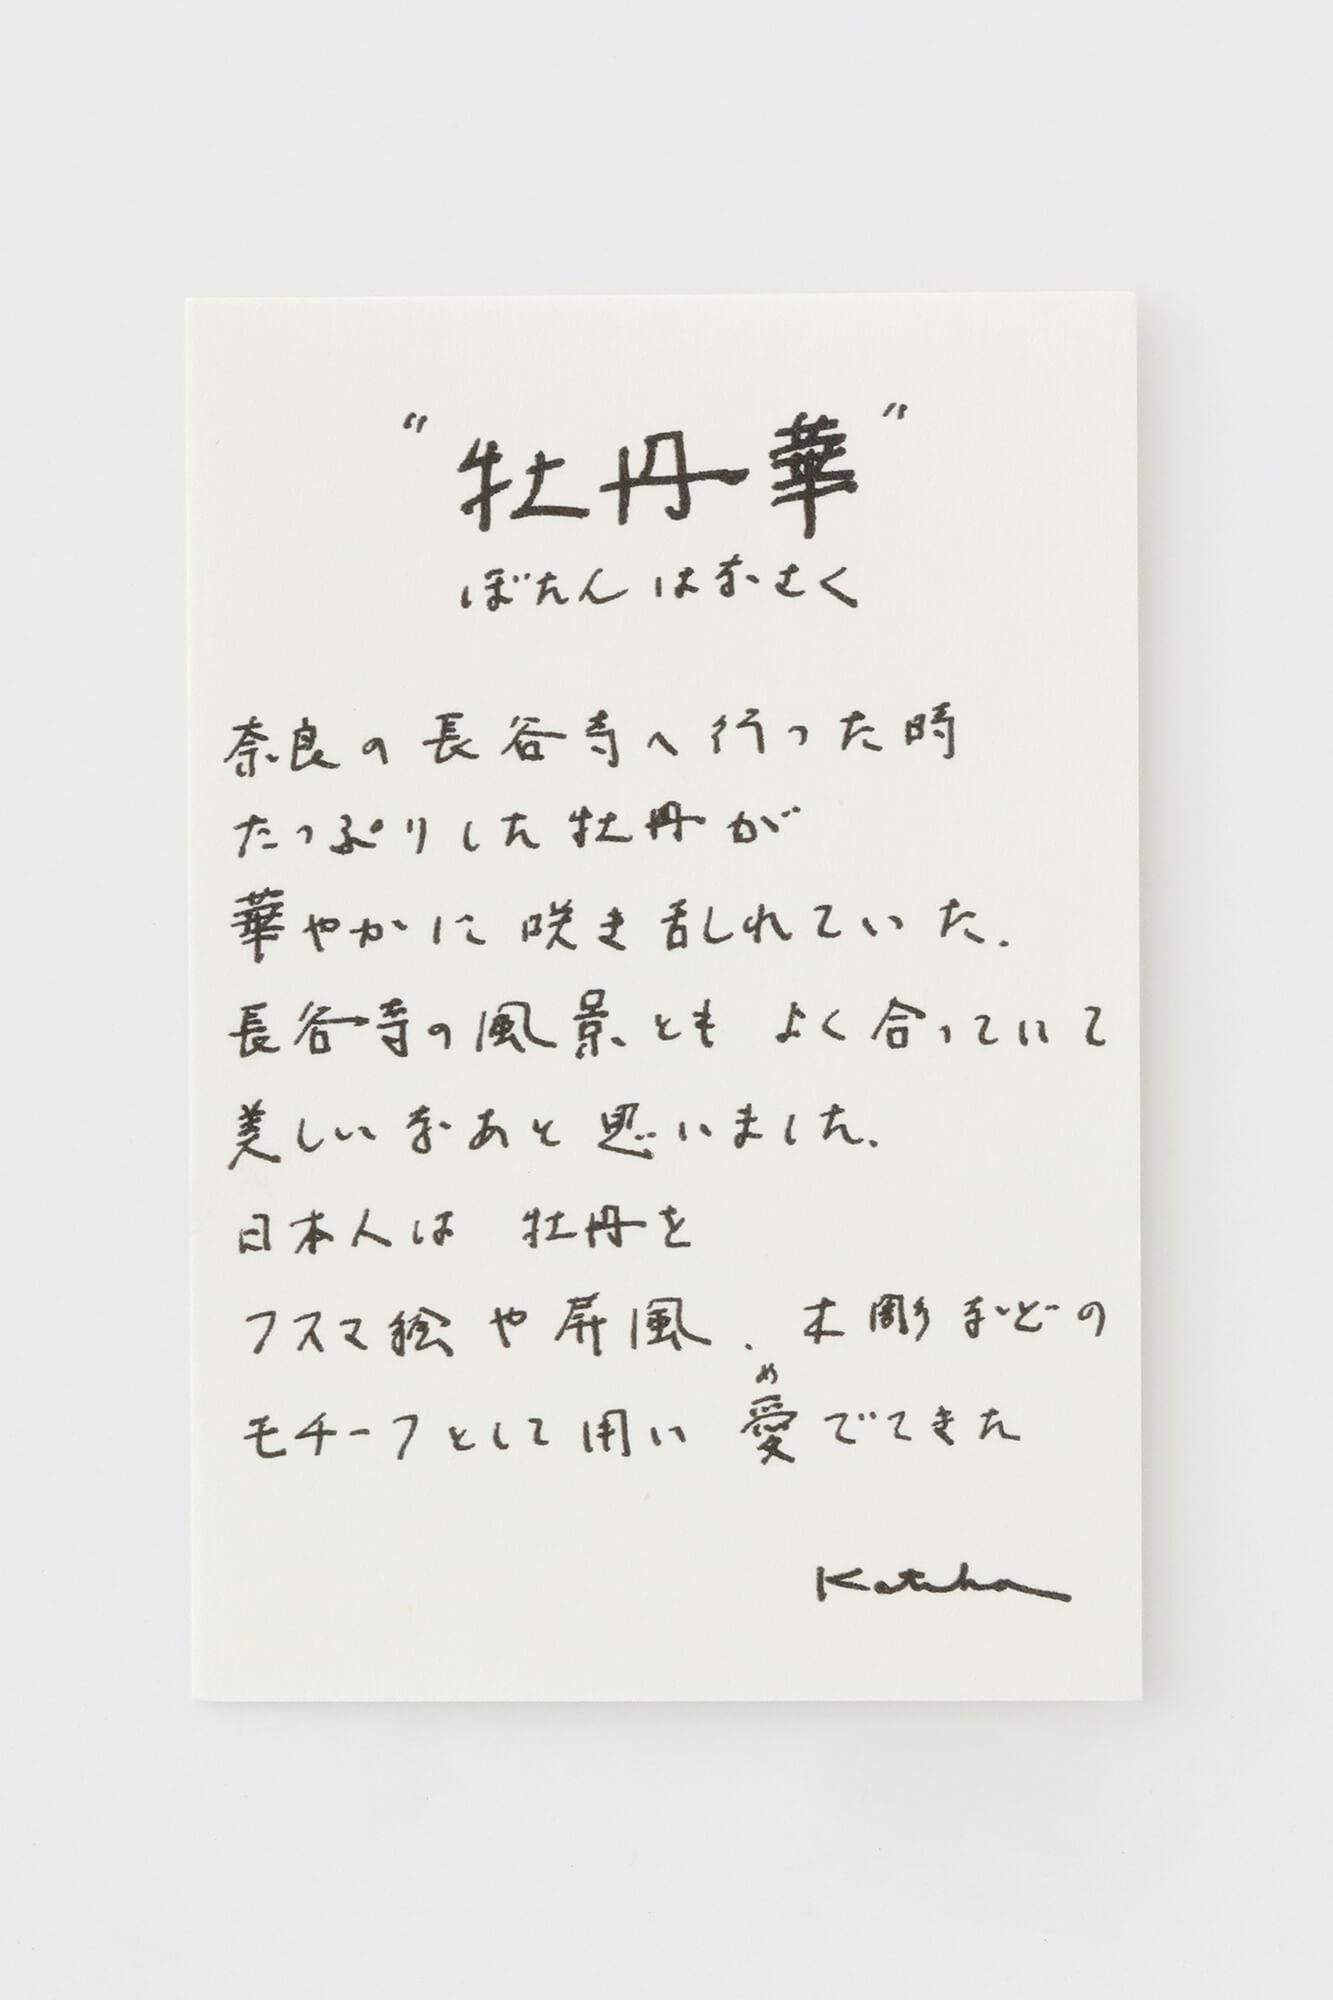 “牡丹華”
ぼたん はなさく
奈良の長谷寺へ行った時
たっぷりした牡丹が
華やかに咲き乱れていた.
長谷寺の風景とも よく合っていて
美しいなあと思いました.
日本人は 牡丹を
フスマ絵や屏風、木彫などの
め
モチーフとして用い 愛でてきた